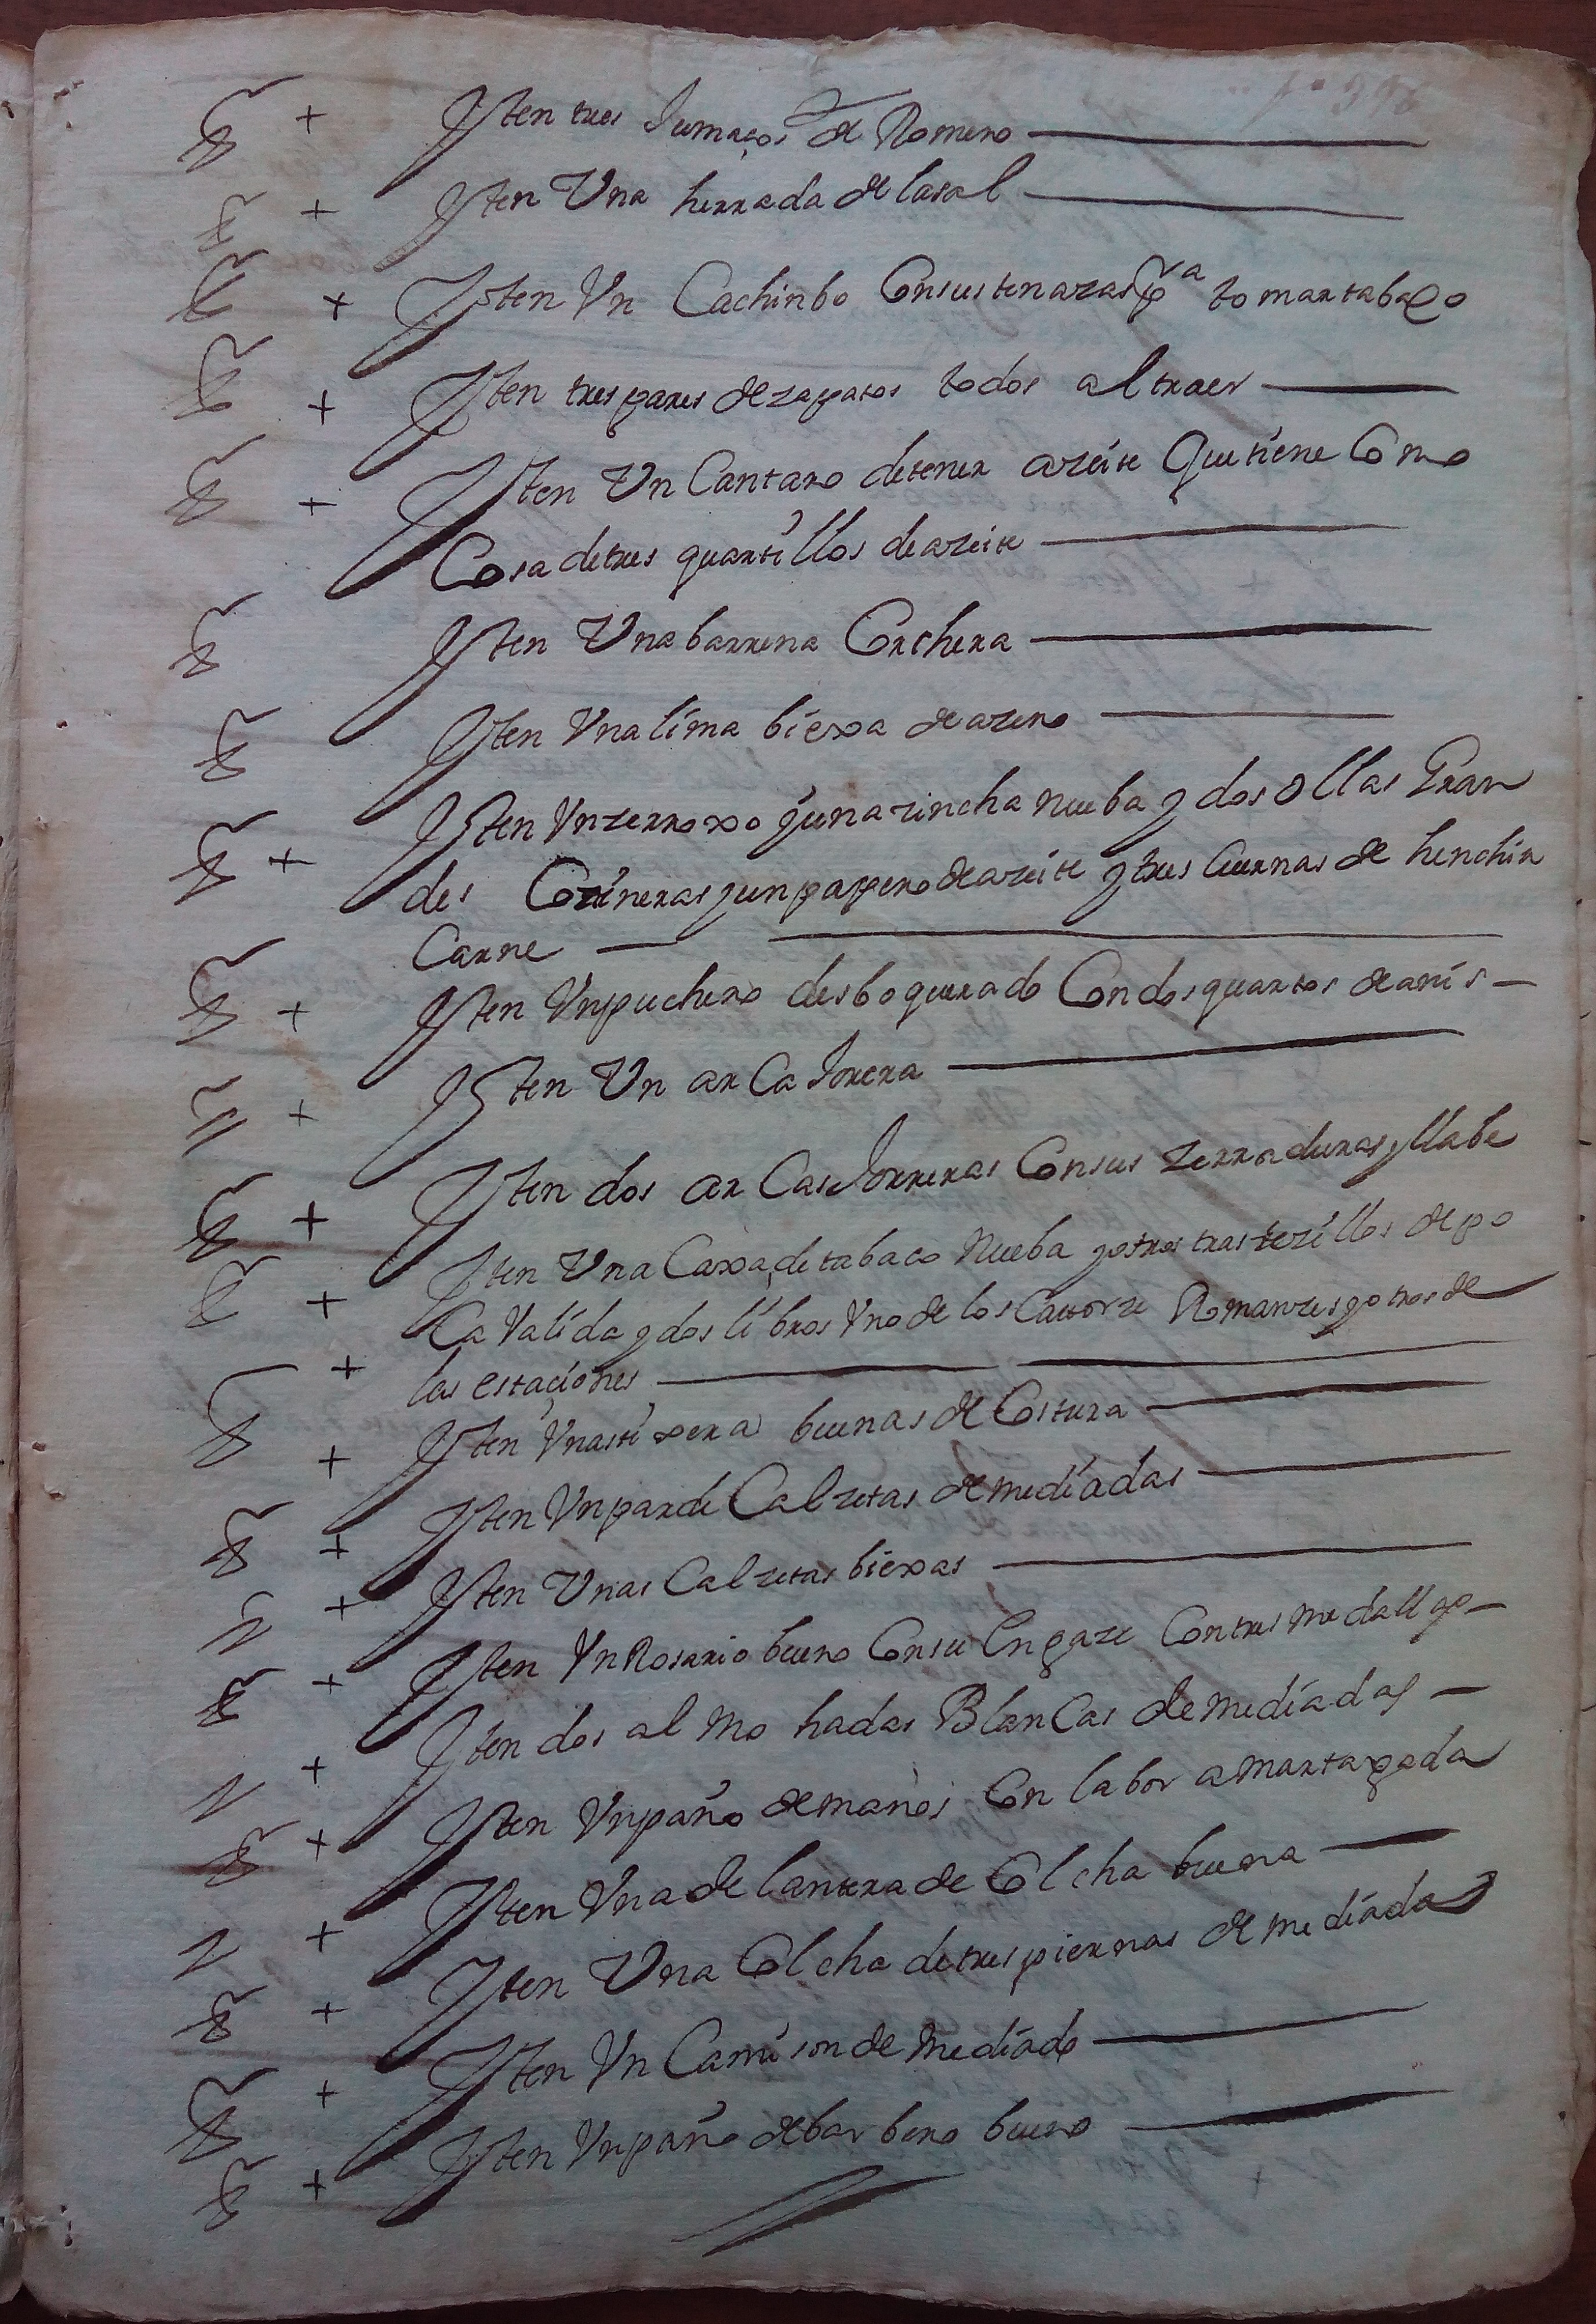 + Yten tres sumaços de Romero
+ Yten Vna herrada de lasal
+ Yten Vn Cachinbo Consus tenazas pa tomar tabaco
+ Yten tres pares de zapatos todos al traer
+ Yten Vn Cantaro de tener azeite Que tiene Como
Cosa de tres quartillos de azeite
Yten Vna barrena Corchera
Yten Vna lima biexa de azero
+ Yten Vn zerroxo y una zincha nueba y dos ollas Gran
des Cozineras y un papero de azeite y tres Cuernas de henchir
Carne
+ Yten Vn puchero desboquerado Con dos quartos de anis
+ Yten Vn arCa
+ Yten dos arCas Consus zerraduras y llabe
+ Yten Vna Caxa de tabaco Nueba y otros trastezillos de po
Ca Valida y dos libros Vno de los Catorze Romanzes y otros de
+ las estaciones
+ Yten Vnas tixera buenas de Costura
+ Yten Vn par de Calzetas de mediadas
+ Yten Vnas Calzetas biexas
+ Yten Vn Rosario bueno Consu Engaze Con tres medallas
+ Yten dos almohadas BlanCas de mediadas
+ Yten Vn paño de manos Con labor amartagada
+ Yten Vna delantera de Colcha buena
+ Yten Vna Colcha de tres piernas de mediada
+ Yten Vn Camison de mediado
+ Yten Vn paño de barbero bueno